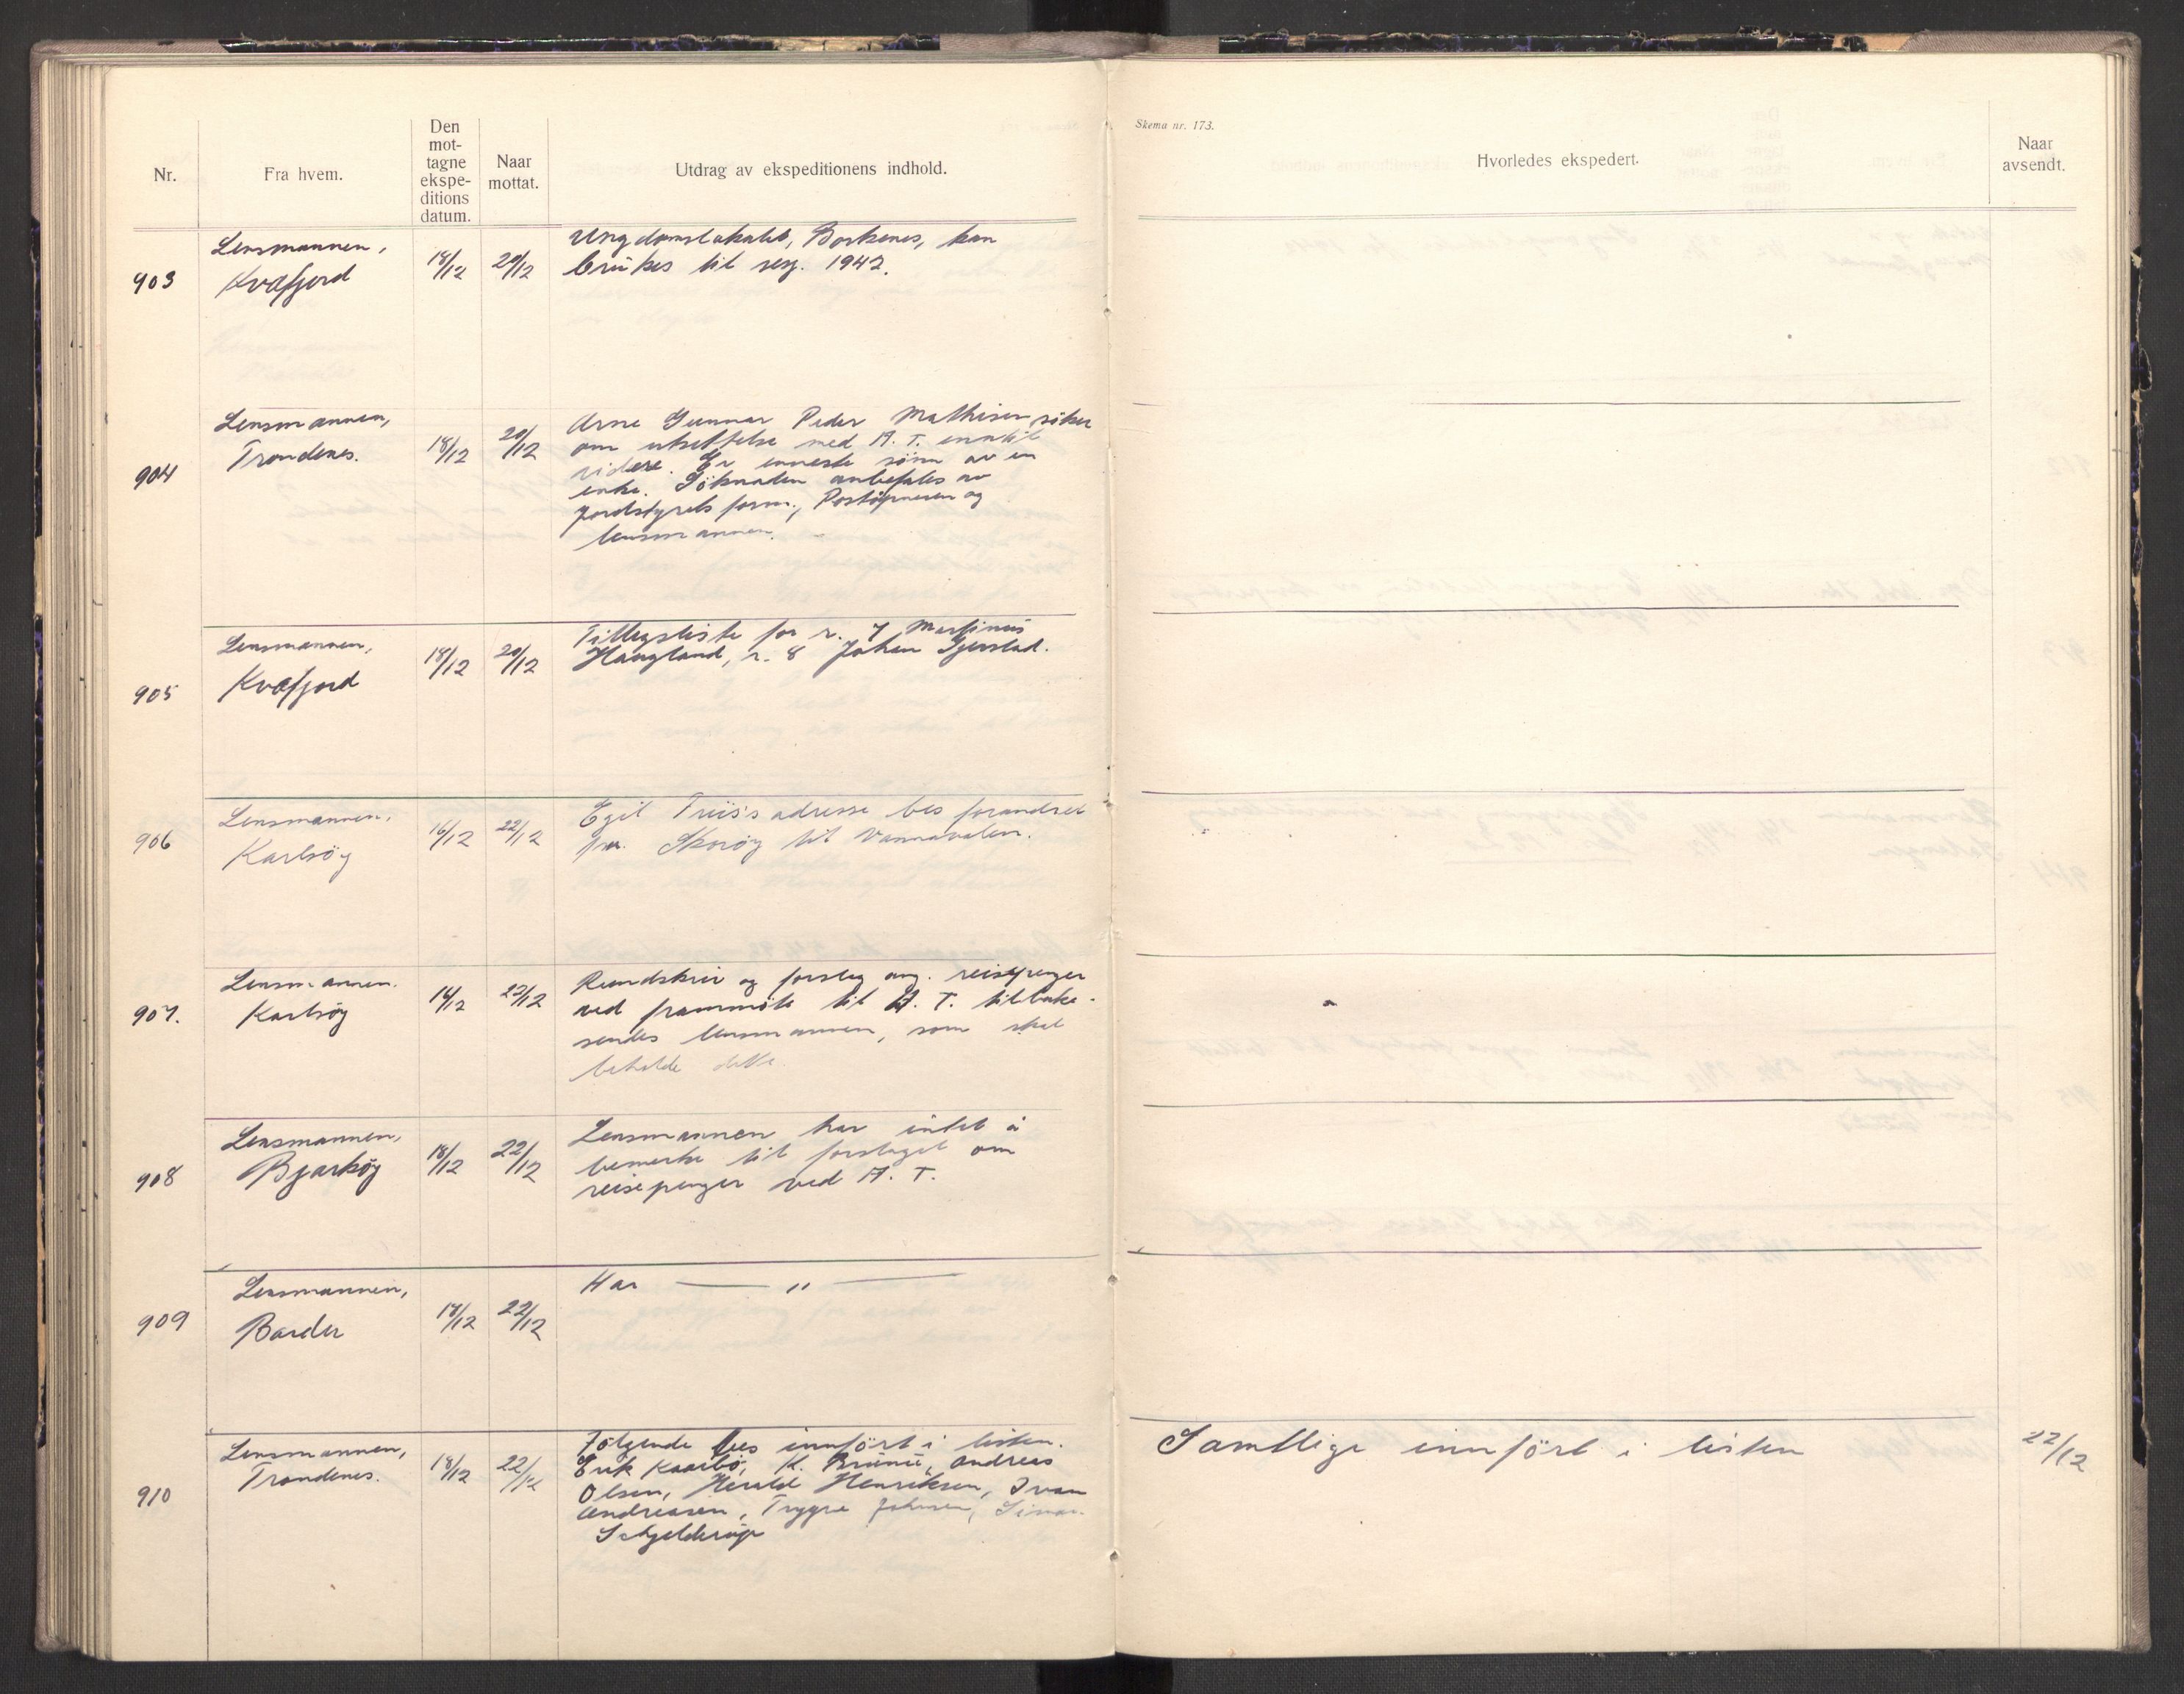 Nr.
Fra hvem.
Den
mot-
tagne
ekspe-
ditions
datum.
Naar
mottat.
Utdrag av ekspeditionens indhold.
Skema nr. 173.
Hvorledes ekspedert.
Naar
avsendt.
903
Lensmannen,
Kvæfjord
18/12
20/12
Ungdomslokalet, Borkenes, kan
brukes til sesj. 1942.
904
Lensmannen,
Trondenes.
18/12
20/12
Arne Gunnar Peder Mathisen söker
om utsettelse med A. T. inntil
videre. Er enneste sönn av en
enke. Söknaden anbefales av
jordstyrets form., Postöpneren og
lensmannen.
905
Lensmannen,
Kvæfjord
18/12
20/12
Tilleggsliste for r. 7 Martinus
Haugland, r. 8 Johan Gjerstad.
906
Lensmannen,
Karlsöy
16/12
22/12
Egil adresse bes forandret
fra Skorøy til Vannavalen.
907.
Lensmannen.
Karlsöy
14/12
22/12
Rundskriv og forslag ang. reisepenger
ved frammöte til A. T. tilbake-
sendes lensmannen, som skal
beholde dette.
908
Lensmannen,
Bjarköy
18/12
22/12
Lensmannen har intet å
bemerke til forslaget om
reisepenger ved A. T.
909
Lensmannen,
Bardu
17/12
22/12
Har — " —
910
Lensmannen,
Trondenes.
18/12
22/12
Fölgende bes innfört i listen.
Erik Kaarbö, K. Andreas
Olsen, Herold Henriksen, Ivan
Andreasen, Trygve Johnsen,
Schjelderup
Samtlige innfört i listen
22/12